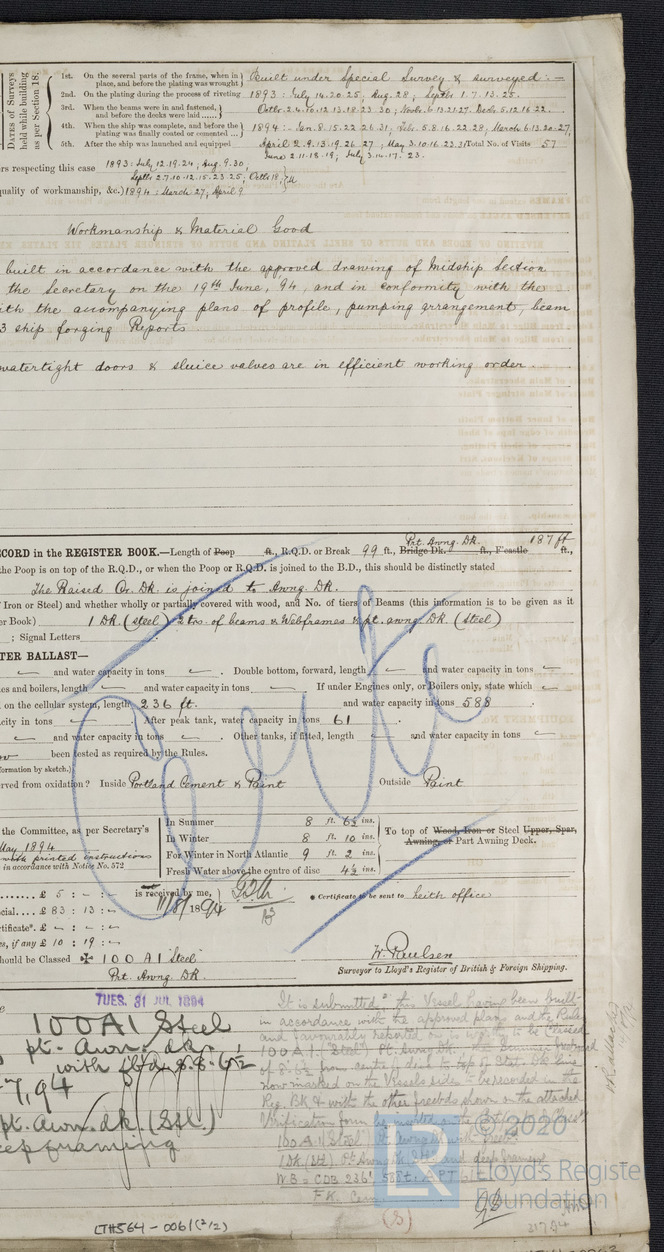 Dates of Surveys held while building as per Section 18.
1st. On the several parts of the frame, when in place, and before the plating was wrought
2nd. On the plating during the process of riveting
3rd. When the beams were in and fastened, and before the decks were laid ......
4th. When the ship was complete, and before the plating was finally coated or cemented ...
5th. After the ship was launched and equipped
Built under Special Survey & surveyed :-
1893: July 14.20.25, Aug. 28; Septbr 1.7.13.25.
Octbr. 2.4.10.12.13.18.23.30; Novbr. 6.13.21.27. Decbr. 5.12.16.22.
1894:- Jan. 8.15.22.26.31, Febr. 5.8.16.22.28, March 6.13.20.27,
April 2.9.13.19.26.27, May 3.10.16.23.31 Total No. of Visits 57
June 2.11.18.19; July 3.10.17.23.
rs respecting this case 1893: July 12.19.24; Aug. 9.30,
Septbr 2.7.10.12.15.23.25, Octbr 18,
uality of workmanship, &c.) 1894: March 27; April 9
Workmanship & Material Good
built in accordance with the approved drawing of Midship Section
the Secretary on the 19th June, 94, and in conformity with the
ith the accompanying plans of profile, pumping arrangement, beam
3 ship forging Reports
watertight doors & sluice valves are in efficient working order
Prt. Awng Dk. 187 ft
ECORD in the REGISTER BOOK.—Length of Poop ft., R.Q.D. or Break 99 ft., Bridge Dk. ft., F'castle ft.,
the Poop is on top of the R.Q.D., or when the Poop or R.Q.D. is joined to the B.D., this should be distinctly stated
The Raised Qr. Dk is joined to Awng Dk.
Iron or Steel) and whether wholly or partially covered with wood, and No. of tiers of Beams (this information is to be given as it
er Book) 1 Dk (steel) 2 trs. of beams & Webframes & pt. awng. Dk (steel)
; Signal Letters
TER BALLAST—
and water capacity in tons . Double bottom, forward, length and water capacity in tons
es and boilers, length and water capacity in tons . If under Engines only, or Boilers only, state which
on the cellular system, length 236 ft. and water capacity in tons 588 .
city in tons . After peak tank, water capacity in tons 61 .
and water capacity in tons . Other tanks, if fitted, length and water capacity in tons
been tested as required by the Rules.
formation by sketch.)
rved from oxidation? Inside Portland Cement & Paint Outside Paint
the Committee, as per Secretary's
May 1894
with printed instructions
in accordance with Notice No. 572
In Summer 8 ft. 6½ ins.
In Winter 8 ft. 10 ins.
For Winter in North Atlantic 9 ft. 2 ins.
Fresh Water above the centre of disc 4½ ins.
To top of Wood, Iron or Steel Upper, Spar, Awning, or Part Awning Deck.
£ 5 : - : - is received by me,
cial .... £ 83 : 13 : - 11/8/1894
Certificate to be sent to Leith office
rtificate*. £ - : - : -
es, if any £ 10 : 19 : -
hould be Classed ✠ 100 A1 Steel
Prt. Awng Dk
W. Paulsen
Surveyor to Lloyd's Register of British & Foreign Shipping.
TUES. 31 JUL 1894
100A1 Steel
pt. Awn. dk.
with fbd. 8.8.6½
7,94
pt. Awn. dk. (Stl.)
eep framing
It is submitted this Vessel having been built
in accordance with the approved plans and the Rules
and favourably reported on is worthy to be classed
100A1 (Steel) Pt. Awng Dk.
now marked on the Vessels sides to be recorded in the
Reg. Bk & with the other freebds shown on the attached
Verification form
100A1 (Steel)
and deep framing
Ceto
LTH564-0061(2/2)
(S)
LR
© 2020
Lloyd's Registe
Foundation